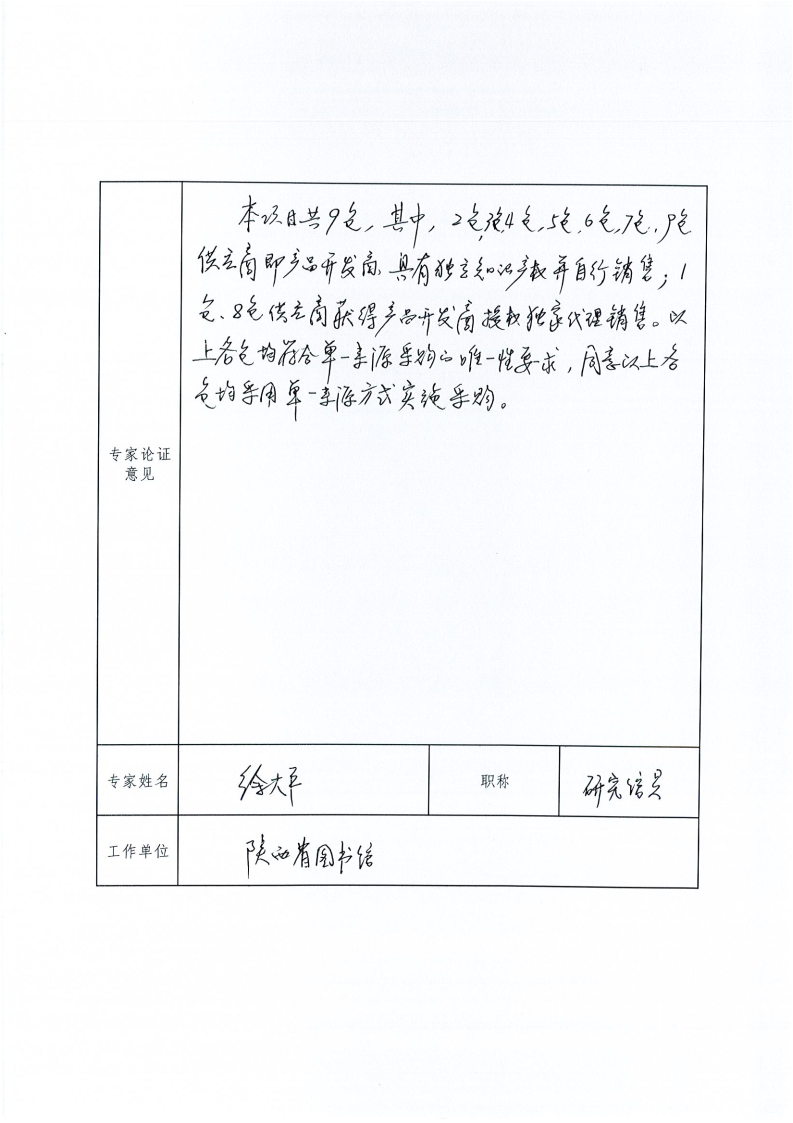 本项目共9包，其中，2包、3包、4包、5包、6包、7包、9包
供应商即产品开发商，具有独立知识产权并自行销售；1
包、8包供应商获得产品开发商授权独家代理销售。以
上各包均符合单一来源采购的唯一性要求，同意以上各
包均采用单一来源方式实施采购。
专家论证
意见
专家姓名 徐大平 职称 研究馆员
工作单位 陕西省图书馆